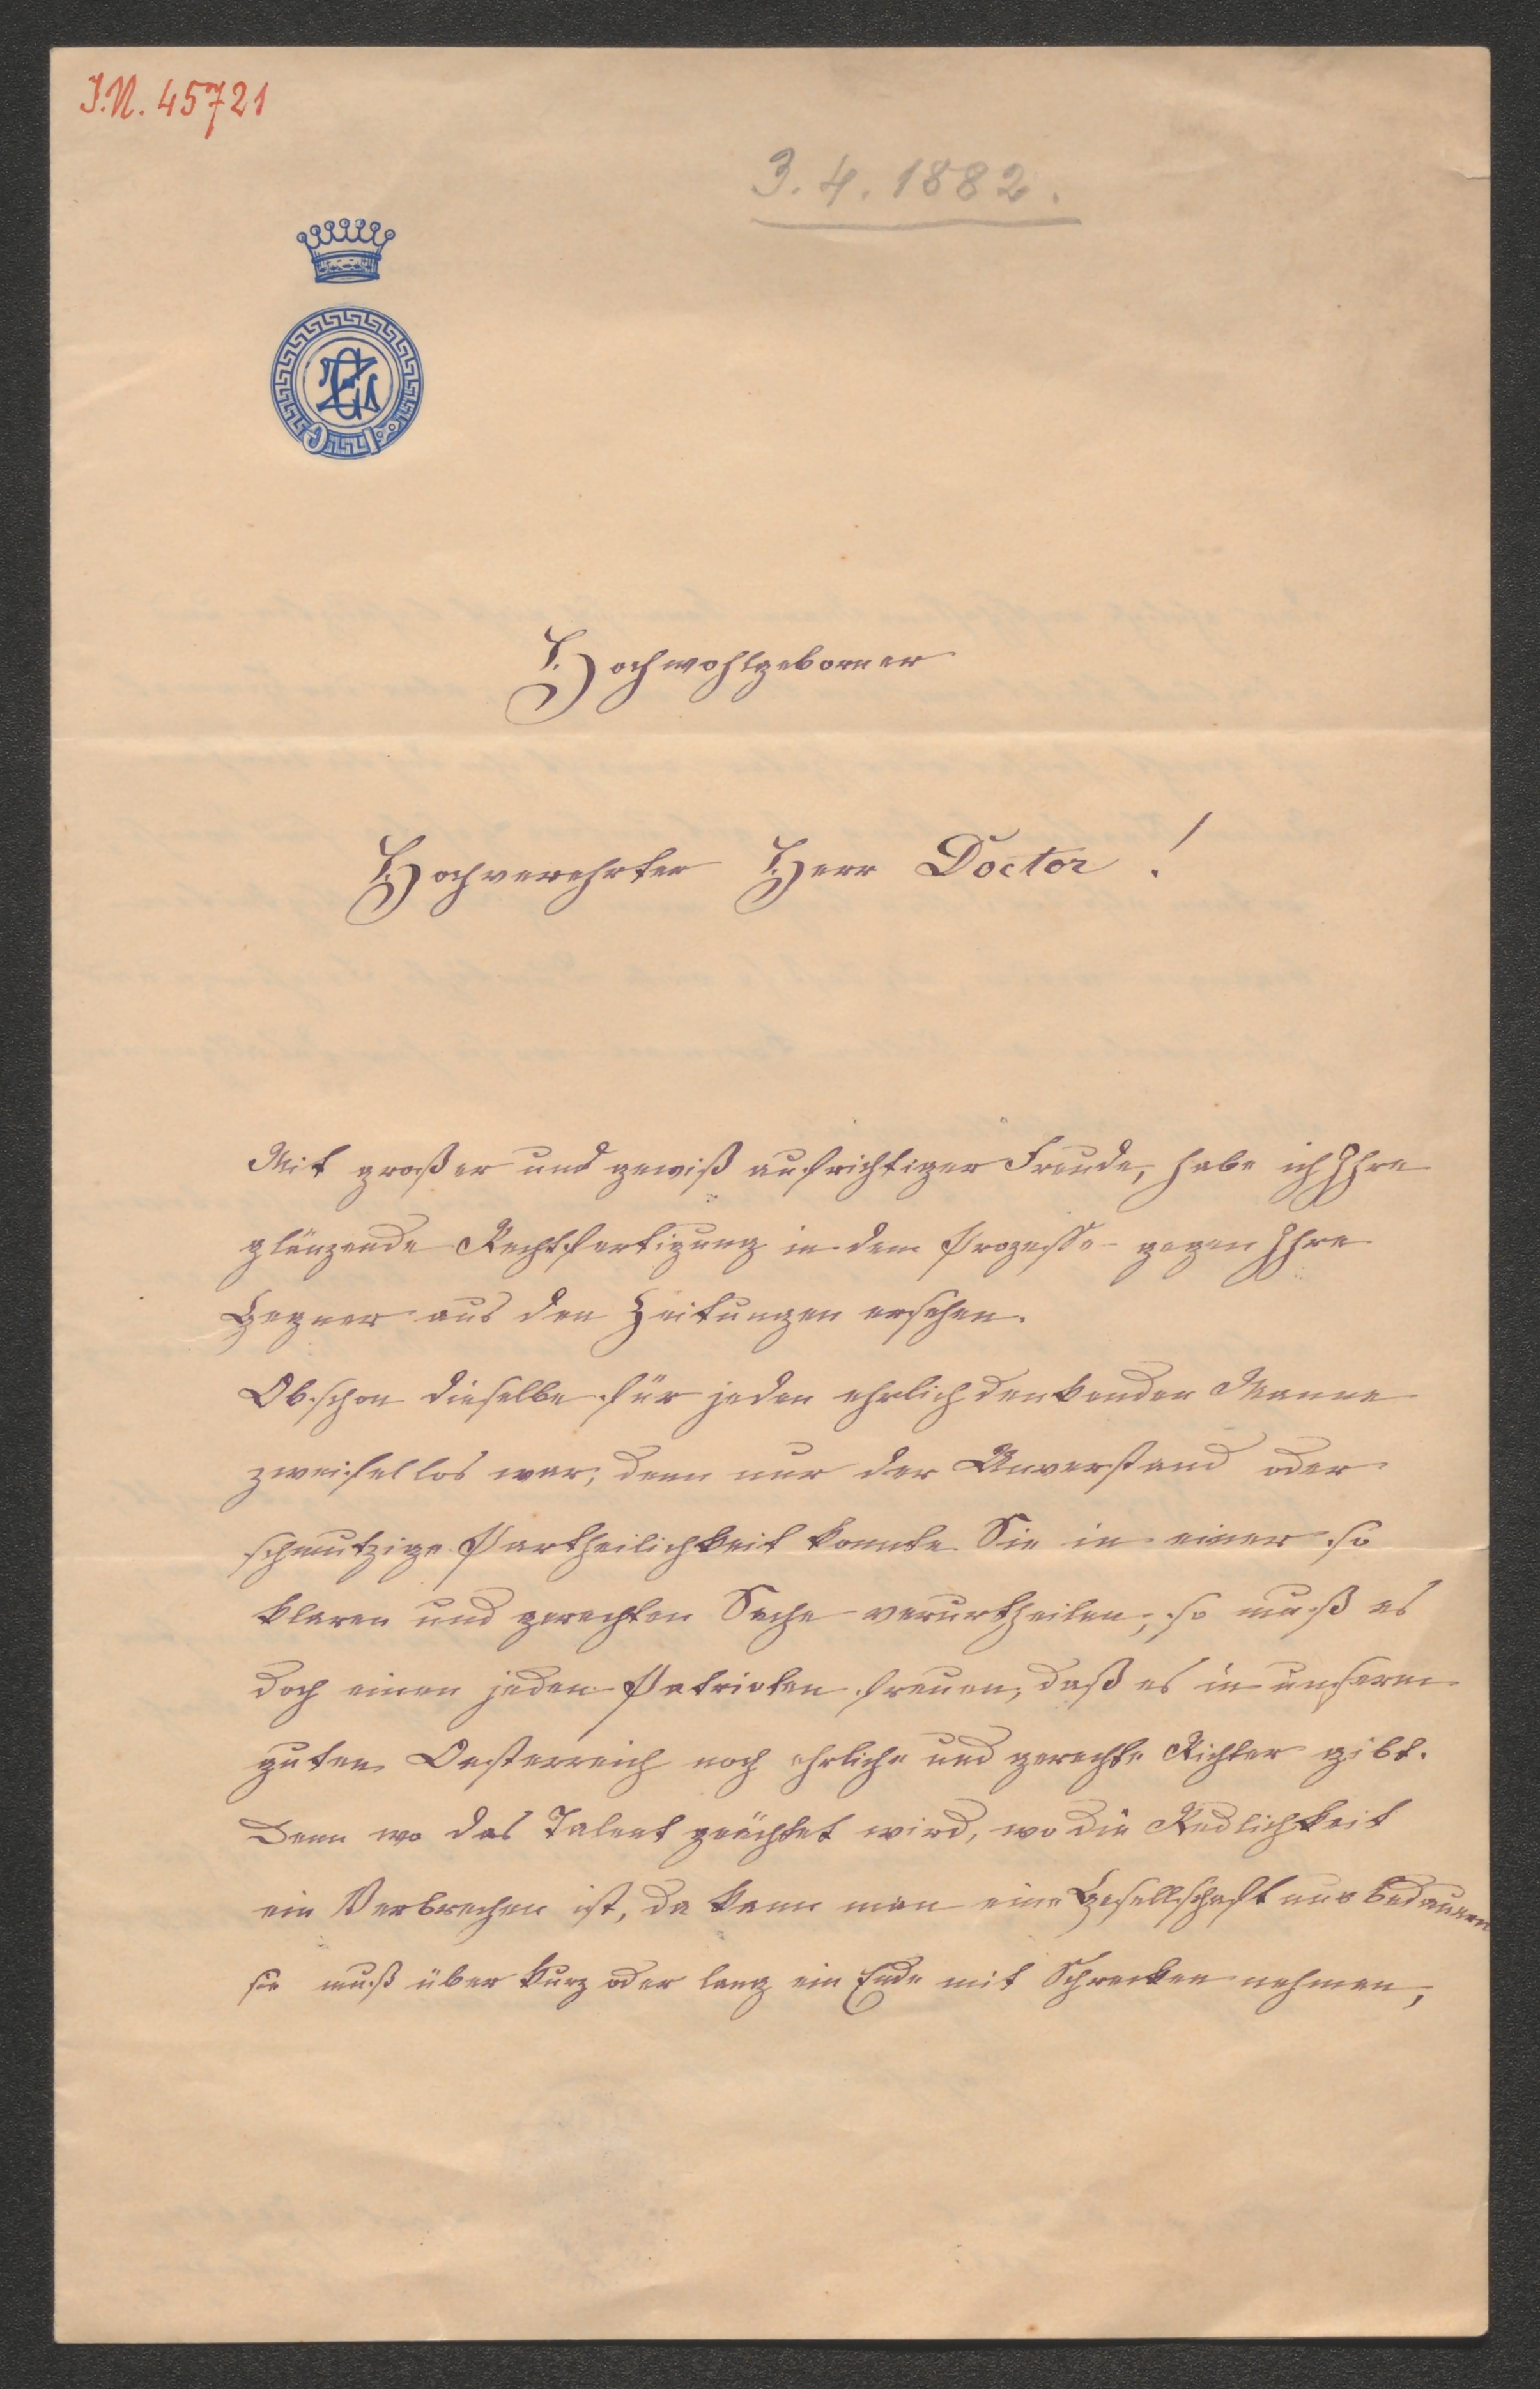 J.N. 45721
3.4.1882.
Hochwohlgeborner
Hochverehrter Herr Doctor!
Mit großer und gewiß aufrichtiger Freude, habe ich Ihre
glänzende Rechtfertigung in dem Prozesse gegen Ihre
Gegner aus den Zeitungen ersehen.
Obschon dieselbe für jeden ehrlich denkenden Manne
zweifellos war, denn nur der Unverstand oder
schmutzige Partheilichkeit konnte Sie in einer so
klaren und gerechten Sache verurtheilen, so muß es
doch einen jeden Patrioten freuen, daß es in unserem
guten Oesterreich noch ehrliche und gerechte Richter gibt.
Denn wo das Talent geächtet wird, wo die Redlichkeit
ein Verbrechen ist, da kann man eine Gesellschaft nur bedauern
sie muß über kurz oder lang ein Ende mit Schrecken nehmen,